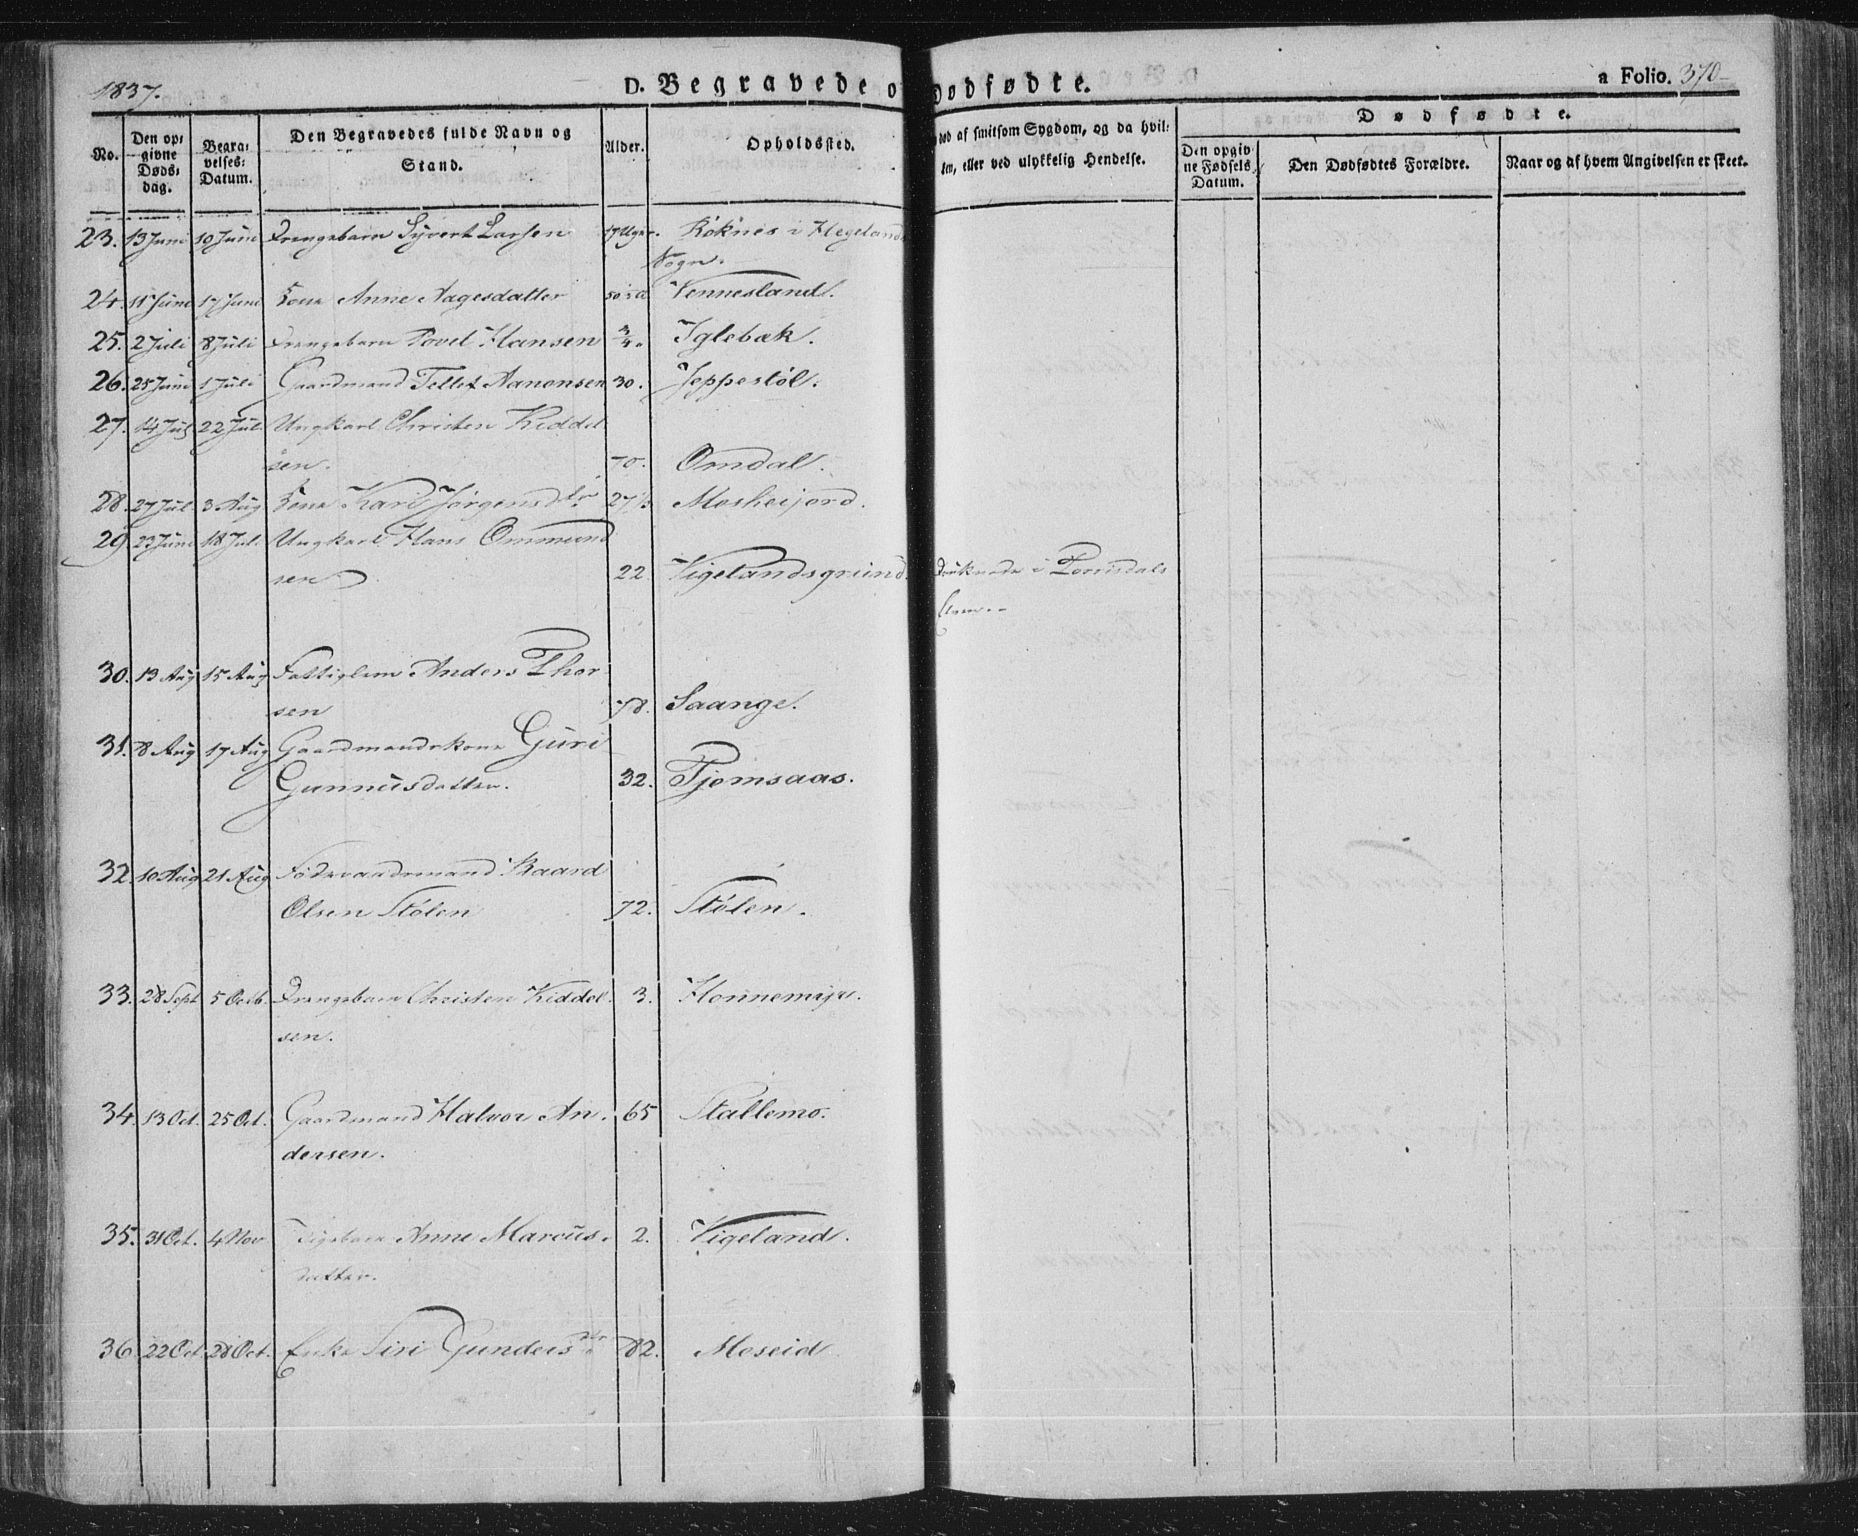 1837.
D. Begravede o Dødfødte.
a Folio. 370
No.
Den op-
givne
Døds-
dag.
Begra-
velses-
Datum.
Den Begravedes fulde Navn og
Stand.
Alder.
Opholdssted.
død af smitsom Sygdom, og da hvil-
den, eller ved ulykkelig Hendelse.
Dødfødte.
Den opgiv-
ne Fødsels
Datum.
Den Dødfødtes Forældre.
Naar og af hvem Angivelsen er skeet.
23. 13 Juni 10 Juni Drengebarn Syvert Larsen 17 Uger. Røknes i Hegelands
Sogn.
24. 11 Juni 17 Juni Kone Anne Aagesdatter Vennesland.
25. 2 Juli 8 Juli Drengebarn Povel Hansen 3/4 Iglebæk.
26. 25 Juni 1 Juli Gaardmand Tellef Aanonsen 30. Jeppestøl.
27. 14 Jul 22 Jul Ungkarl Christen Kiddel
sen. 70. Omdal.
28. 27 Jul 3 Aug Kone Kari Jørgensdtr 27 Moskeijord.
29. 23 Juni 18 Jul. Ungkarl Hans Ommund
sen 22 Vigelandsgrund. Druknede i Torrisdals
Elven.
30. 13 Aug 15 Aug Fattiglem Anders Thor
sen 78. Saange.
31. 8 Aug 17 Aug Gaardmandskone Guri
Gunnusdatter. 32. Tjomsaas.
32. 10 Aug 21 Aug Føderaadsmand Baard
Olsen Stølen 72. Stølen.
33. 28 Sept 5 Octb. Drengebarn Christen Kiddel 3. Honnemyr.
sen.
34. 13 Oct. 25 Oct. Gaardmand Halvor An 65 Stallemo.
dersen.
35. 31 Oct. 4 Nov Pigebarn Anne Marcus 2. Vigeland.
datter.
36 22 Oct 28 Oct. Enke Siri Gundersdtr 82. Moseid